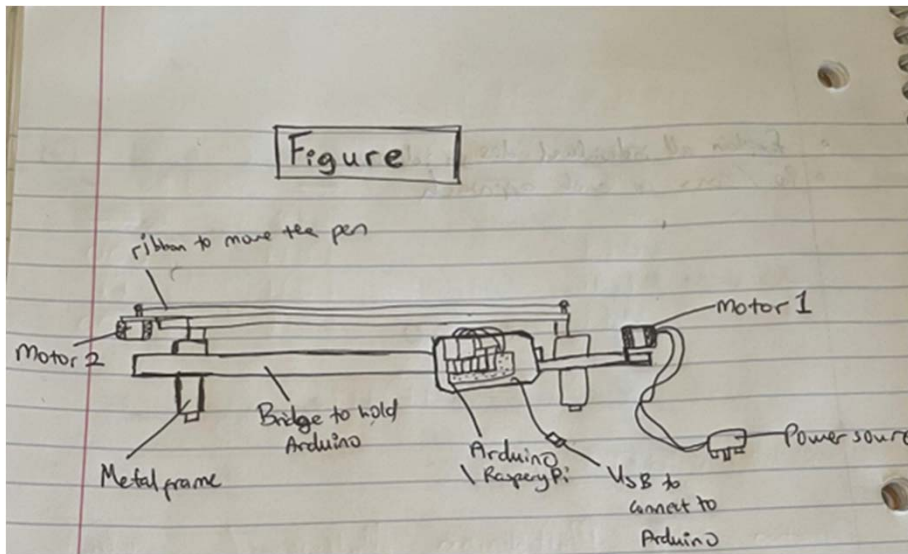 Figure
ribbon to move tea pen
Motor 1
Motor 2
Bridge to hold
Arduino
Metal frame
Arduino
\ Raspery Pi
USB to
connect to
Arduino
Power source